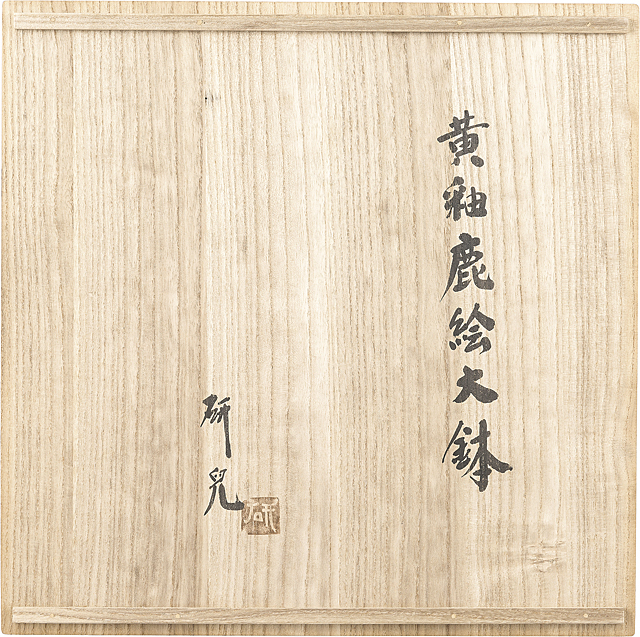 黄釉鹿絵大鉢
研児
研